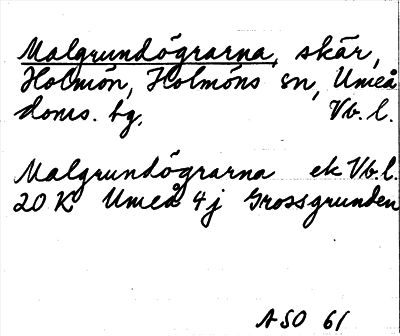 Malgrundögrarna, skär,
Holmön, Holmöns sn, Umeå
doms. hg. Vb. l.
Malgrundögrarna ek Vb. l.
20 K Umeå 4j Grossgrunden
ASO 61